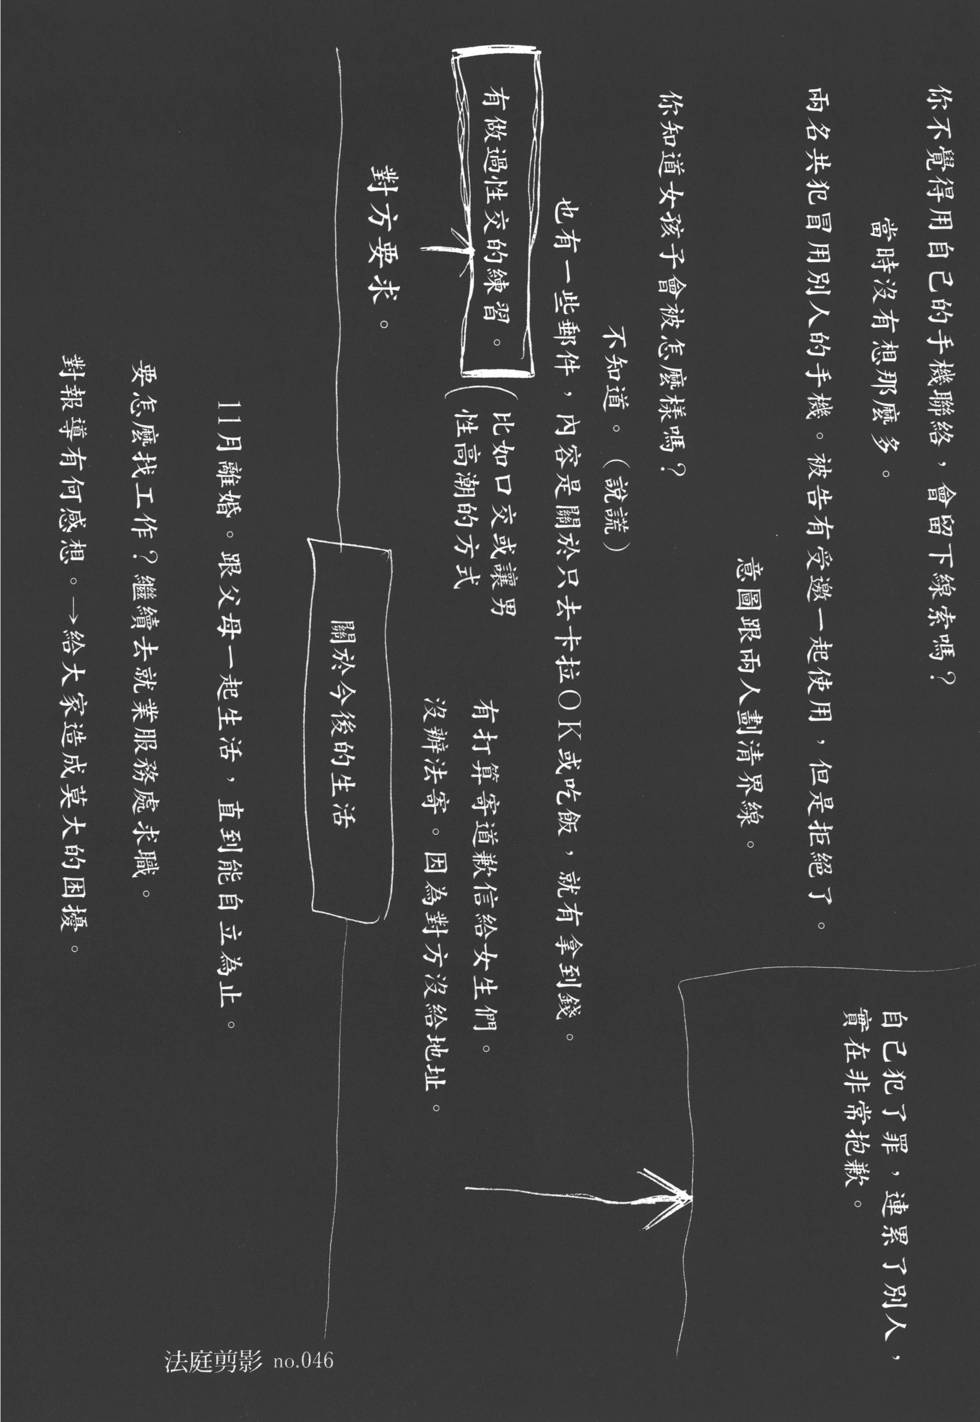 你不覺得用自己的手機聯絡，會留下線索嗎？
當時沒有想那麼多。
兩名共犯冒用別人的手機。被告有受邀一起使用，但是拒絕了。
意圖跟兩人劃清界線。
你知道女孩子會被怎麼樣嗎？
不知道。（說謊）
也有一些郵件，內容是關於只去卡拉OK或吃飯，就有拿到錢。
有做過性交的練習。
（比如口交或讓男
性高潮的方式
對方要求。
有打算寄道歉信給女生們。
沒辦法寄。因為對方沒給地址。
自己犯了罪，連累了別人，
實在非常抱歉。
關於今後的生活
11月離婚。跟父母一起生活，直到能自立為止。
要怎麼找工作？繼續去就業服務處求職。
對報導有何感想。→給大家造成莫大的困擾。
法庭剪影 no.046